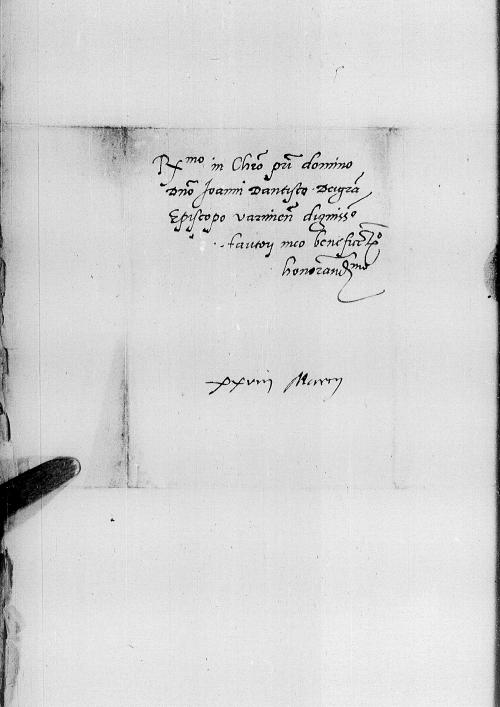 R.mo in Chro pri domino
Dno Joanni Dantisco Dei gra
Episcopo varmien dignisso
fautori meo beneficent.o
honorand.mo
xxviii Martij